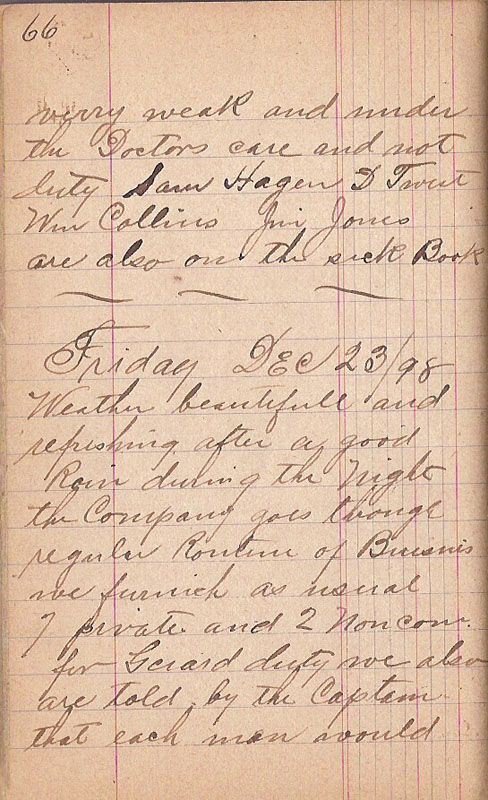 66
verry weak and under
the Doctors care and not
duty Sam Hagen D Twist
Wm Collins Jim Jones
are also on the sick Book
Friday DEC 23/98
Weather beautifull and
refreshing after a good
Rain during the Night
the Company goes though
regular Routine of Buisnis
we furnich as usual
7 private and 2 Noncom.
for Gerard duty we also
are told by the Captain
that each man would